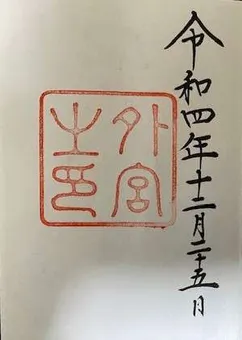 令和四年十二月二十五日
外宮
之印